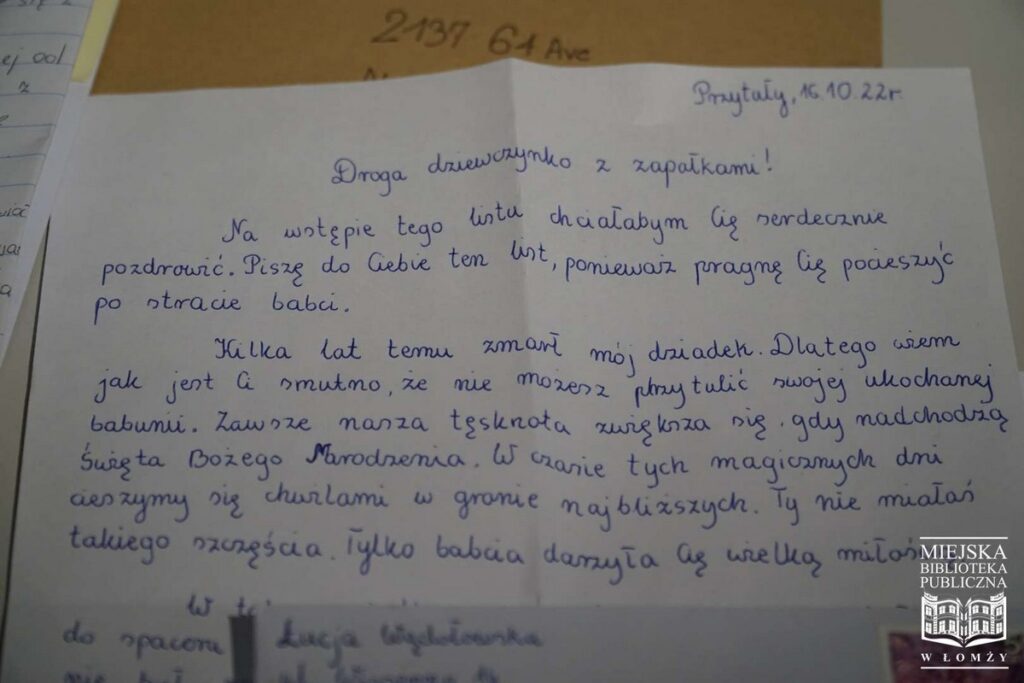 2137 61 Ave
ej od
z
Przytuły, 16.10.22r.
Droga dziewczynko z zapałkami!
Na wstępie tego listu chciałabym Cię serdecznie
pozdrowić. Piszę do Ciebie ten list, ponieważ pragnę Cię pocieszyć
po stracie babci.
Kilka lat temu zmarł mój dziadek. Dlatego wiem
jak jest Ci smutno, że nie możesz przytulić swojej ukochanej
babunii. Zawsze nasza tęsknota zwiększa się, gdy nadchodzą
Święta Bożego Narodzenia. W czasie tych magicznych dni
cieszymy się chwilami w gronie najbliższych. Ty nie miałaś
takiego szczęścia. Tylko babcia darzyła Cię wielką
W
do spaceru
Łucja
nie był
MIEJSKA
BIBLIOTEKA
PUBLICZNA
W ŁOMŻY